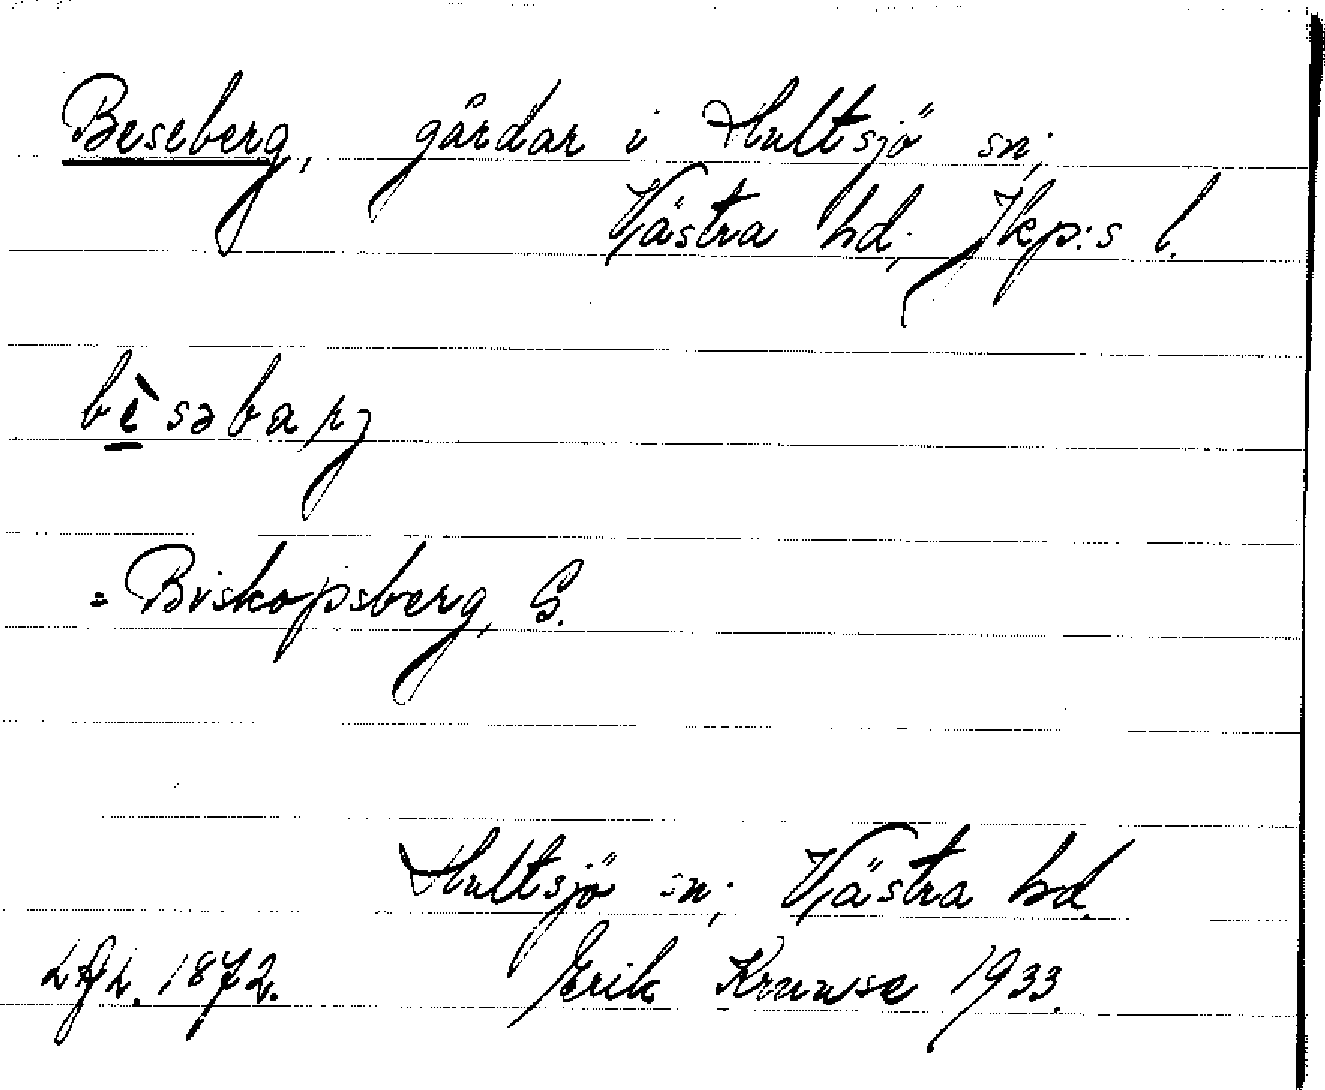 Beseberg, gårdar i Hultsjö sn;
Västra hd; Jkp:s l.
bèsəbarj
= Biskopsberg, G.
Hultsjö sn; Västra hd.
1872. Erik Kruuse 1933.